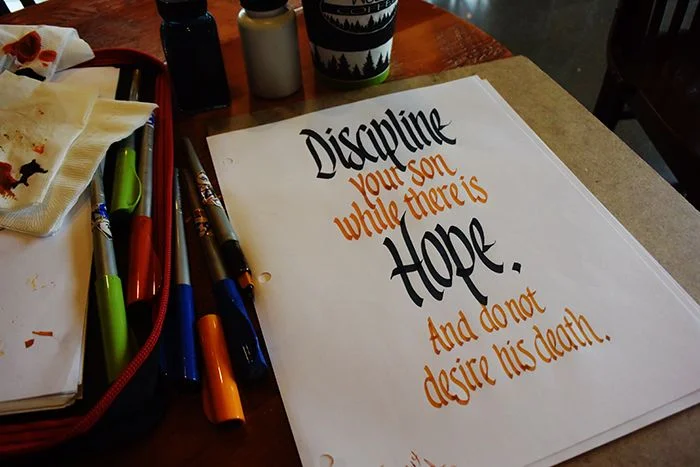 COFFEE
Discipline
your son
while there is
Hope.
And do not
desire his death.